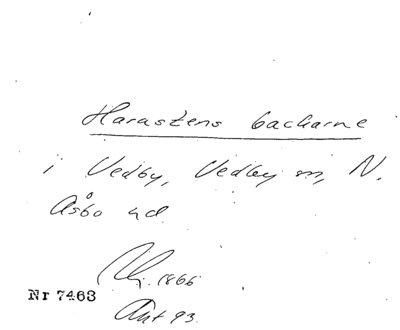 Harastens backarne
i Vedby, Vedby sn, N.
Åsbo hd
Nj. 1866
Nr 7463
Ant 93.